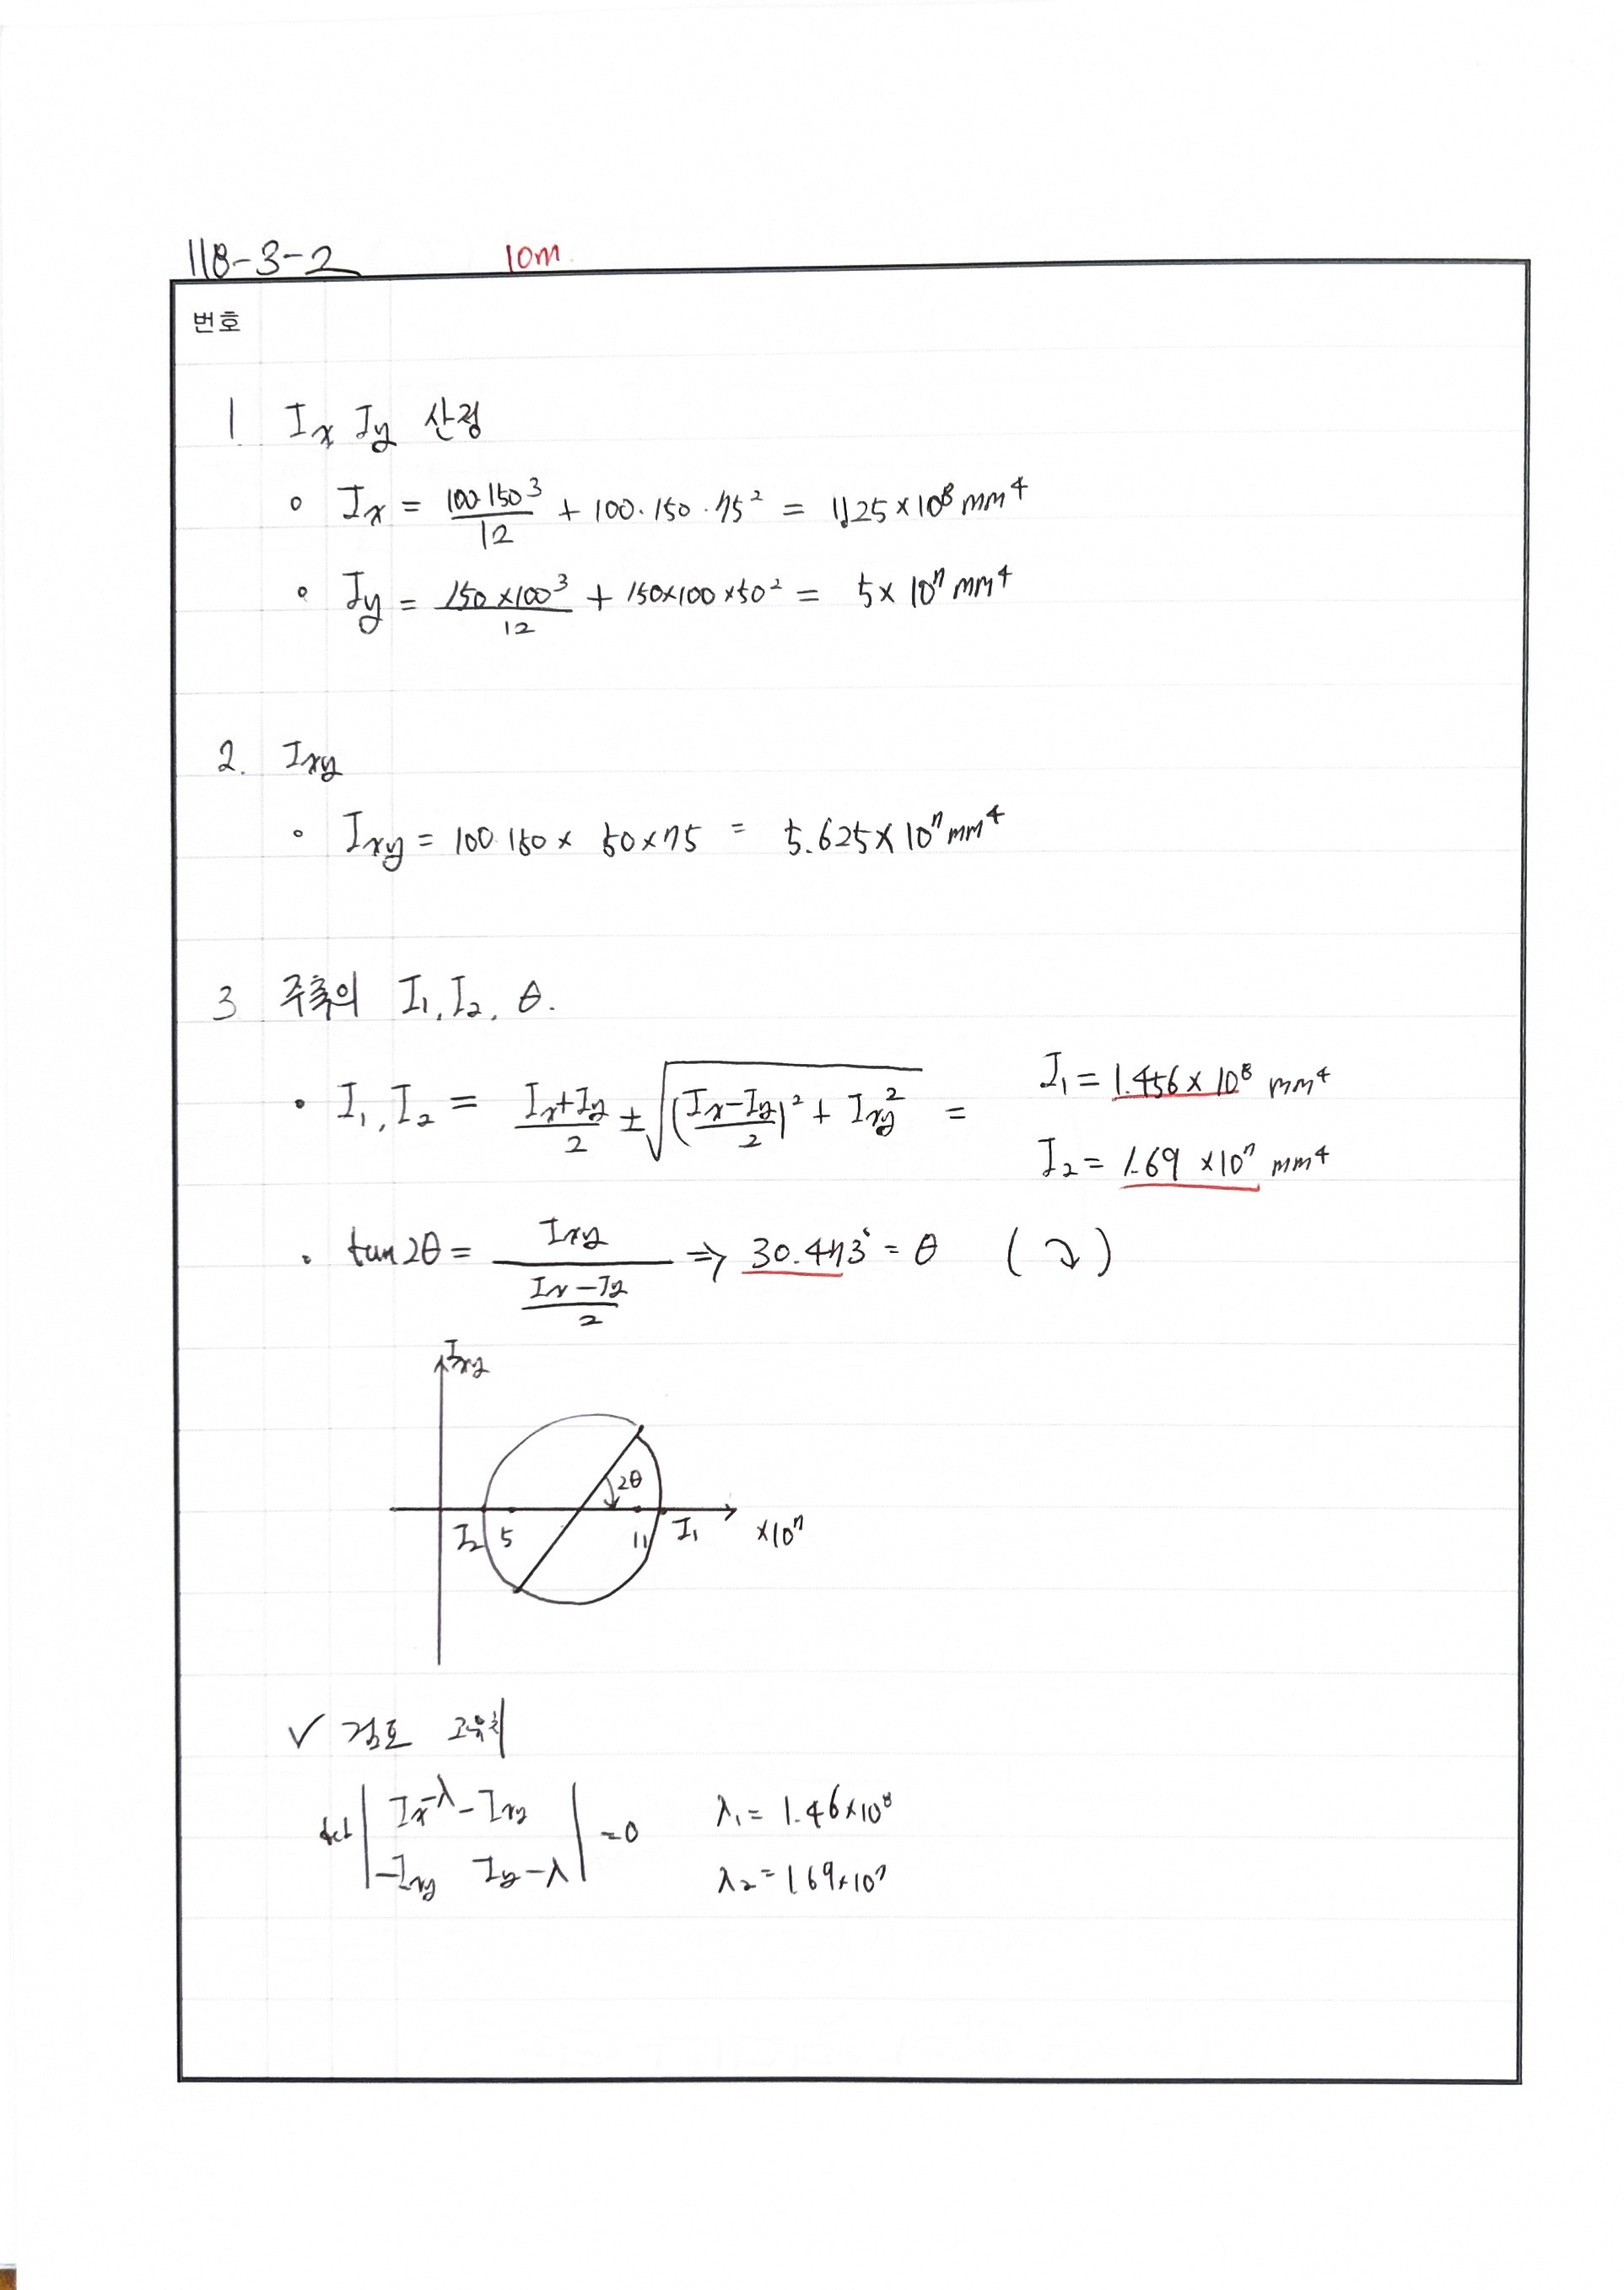 118-3-2 10m
번호
1 Ix Iy 산정
∘ Ix = 100·150³/12 + 100·150·75² = 1.125×10⁸ mm⁴
∘ Iy = 150×100³/12 + 150×100×50² = 5×10⁷ mm⁴
2. Ixy
∘ Ixy = 100·150× 50×75 = 5.625×10⁷ mm⁴
3 주축의 I₁, I₂, θ.
• I₁, I₂ = (Ix+Iy)/2 ± √(((Ix-Iy)/2)² + Ixy²) = I₁ = 1.456×10⁸ mm⁴
I₂ = 1.69 ×10⁷ mm⁴
• tan2θ = Ixy/((Ix-Iy)/2) ⇒ 30.473° = θ (↷)
Ixy
2θ
I₂ 5 11 I₁ ×10⁷
✓ 검토 고유치
det | Ix-λ -Ixy | =0 λ₁= 1.46×10⁸
| -Ixy Iy-λ | λ₂= 1.69×10⁷